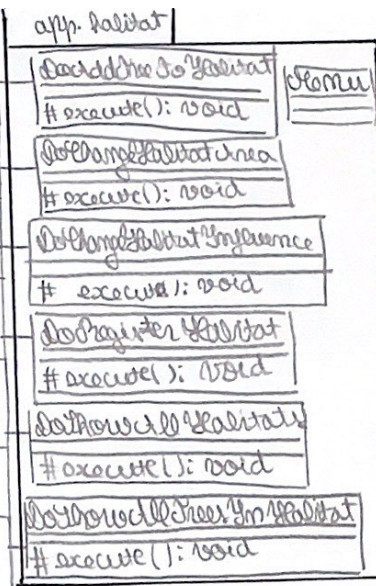 app.habitat
DoAddTreeToHabitat
Menu
# execute(): void
DoChangeHabitatArea
# execute(): void
DoChangeHabitatInfluence
# execute(): void
DoRegisterHabitat
# execute(): void
DoShowAllHabitats
# execute(): void
DoShowAllTreesInHabitat
# execute(): void